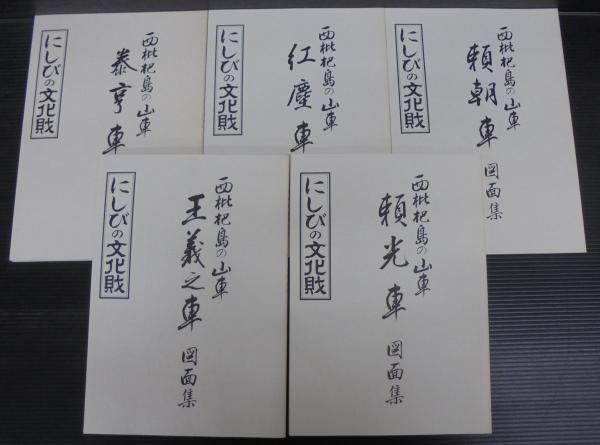 西枇杷島の山車
頼朝車
図面集
にしびの文化財
西枇杷島の山車
紅塵車
にしびの文化財
西枇杷島の山車
泰亨車
にしびの文化財
西枇杷島の山車
頼光車
図面集
にしびの文化財
西枇杷島の山車
王義之車
図面集
にしびの文化財